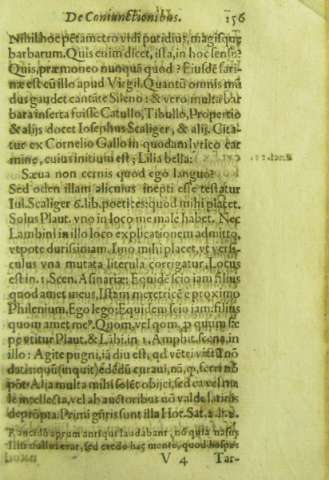 De Coniunctionibus. 156
Nihil hoc pẽtametro vidi putidius, magisque
barbarum. Quis enim dicet, ista, in hoc sensu?
Quis, præ moneo nunquã quod? Eiusdẽ fari-
næ est cũ illo apud Virgil. Quantũ omnis mũ
dus gaudet cantãte Sileno: & vero multa bar
bara inserta fuisse Catullo, Tibullo, Propertio
& alijs docet Iosephus Scaliger, & alij. Cita-
tur ex Cornelio Gallo in quodam lyrico car
mine, cuius initium est; Lilia bella:
Sæua non cernis quod ego languo?
Sed oden illam alicuius inepti esse testatur
Iul. Scaliger 6. lib. poetices: quod mihi placet.
Solus Plaut. vno in loco me male habet. Nec
Lambini in illo loco explicationem admitto,
vtpote durissimam. Imo mihi placet, vt versi-
culus vna mutata literula corrigatur. Locus
est in. 1. Scen. Asinariæ: Equidẽ scio iam filius
quod amet meus, Istam meretricẽ e proximo
Philenium. Ego lego: Equidem scio iam: filius
quom amet me⁹. Quom, vel qom, ꝓ quum sæ
pe vtitur Plaut. & Lãbi. in 1. Amphit. scena, in
illo: Agite pugni, iã diu est, qd
datis: (inquit) curaui, nõ, secri nõ
põt: Alia multa mihi solẽt obijci, sed ea vel ma
le intellecta, vel ab auctoribus nõ valde latinis
deprõpta. Primi gñris sunt illa Hor. Sat. 2. li. 2.
Rancidũ aprum antiqui laudabant, nõ quia nasus
Illis nullus erat, sed credo hac mente, quod hospes
V 4 Tar-